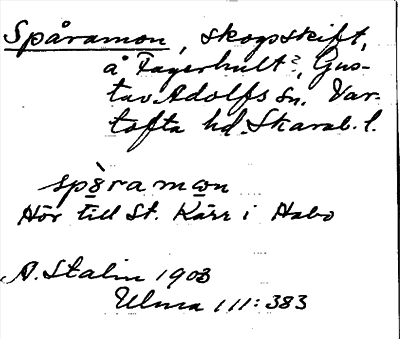 Spåramon, skogsskift,
å Fagerhult?, Gus-
tav Adolfs sn. Var-
tofta hd. Skarab. l.
spo̱̊̀ramo̱n
Hör till St. Kärr i Habo
A. Stalin 1903
Ulma 111:383